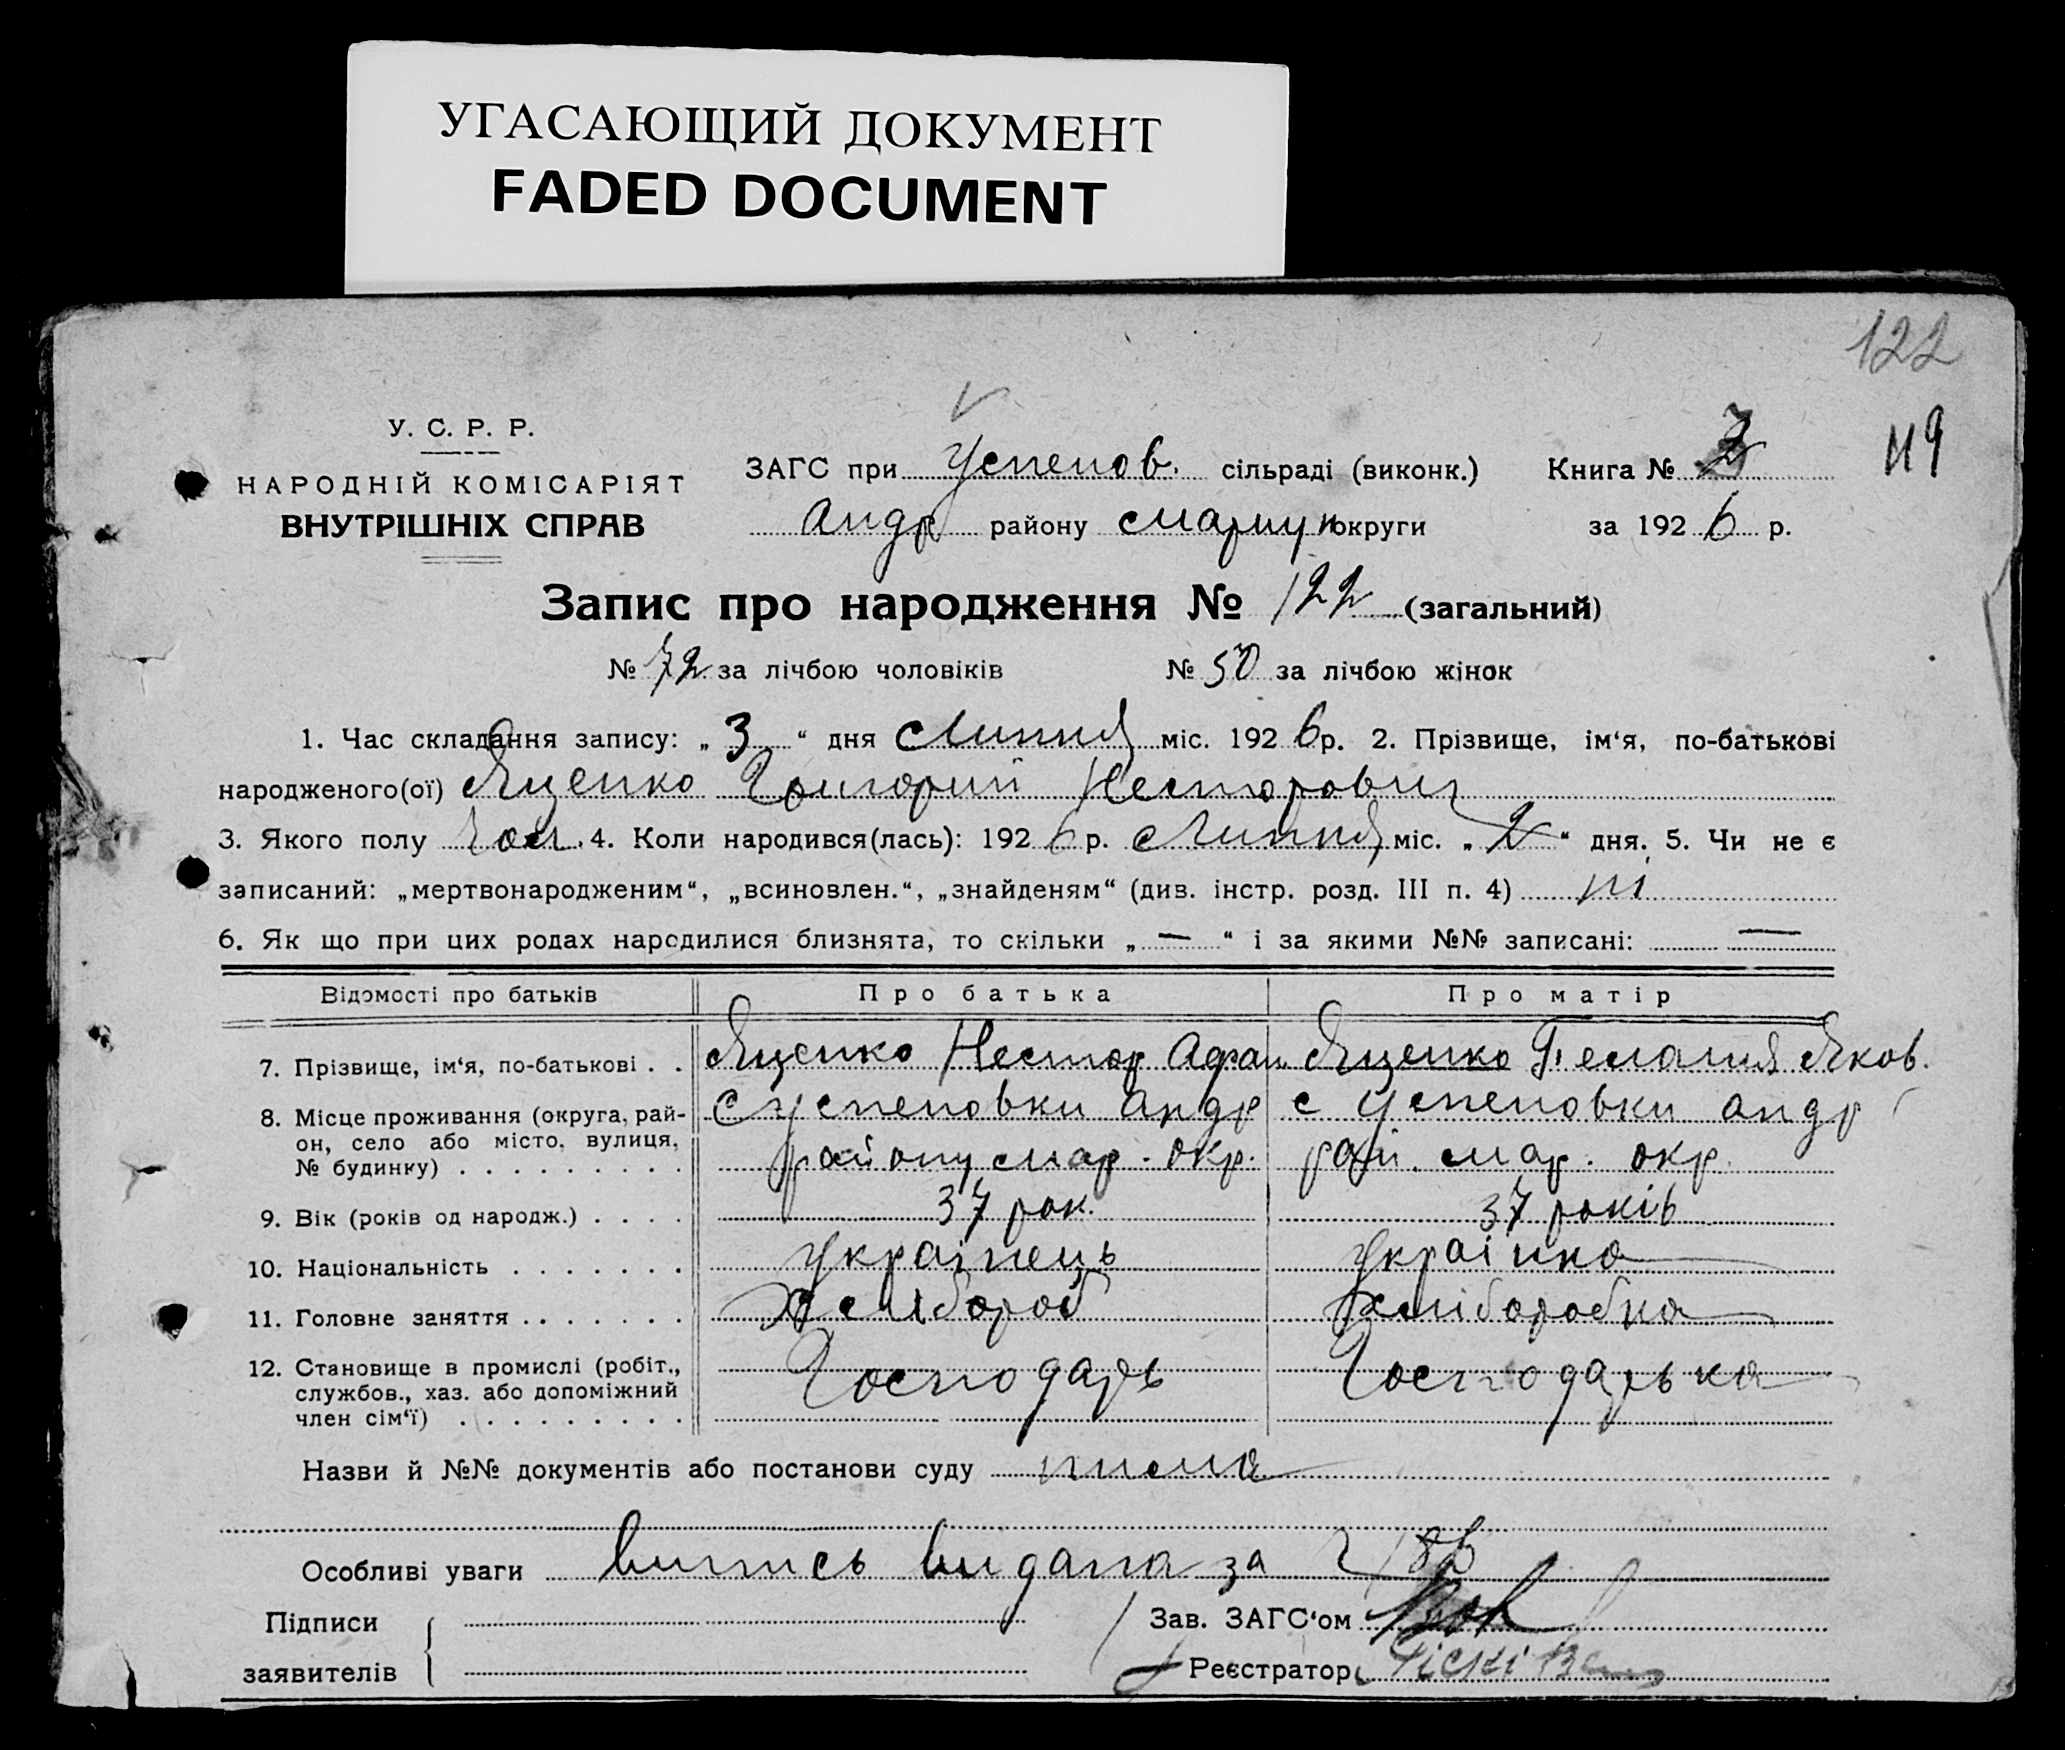 УГАСАЮЩИЙ ДОКУМЕНТ
FADED DOCUMENT
122
У. С. Р. Р.
НАРОДНІЙ КОМІСАРІЯТ
ВНУТРІШНІХ СПРАВ
ЗАГС при Успенов. сільраді (виконк.) Книга №
119
Андр району Маріуп округи за 1926 р.
Запис про народження № 122 (загальний)
№ 72 за лічбою чоловіків № 50 за лічбою жінок
1. Час складання запису: „3“ дня Липня міс. 1926 р. 2. Прізвище, ім‘я, по-батькові
народженого(ої) Яценко Григорий Несторович
3. Якого полу Чол. 4. Коли народився(лась): 1926 р. Липня міс. „2“ дня. 5. Чи не є
записаний: „мертвонародженим“, „всиновлен.“, „знайденям“ (див. інстр. розд. III п. 4) ні
6. Як що при цих родах народилися близнята, то скільки „—“ і за якими №№ записані: —
Відомості про батьків Про батька Про матір
7. Прізвище, ім‘я, по-батькові . . Яценко Нестор Афан. Яценко Пелагия Яков.
8. Місце проживання (округа, рай-
он, село або місто, вулиця,
№ будинку) . . . . . . . . .
с Успеновки Андр
району мар. окр.
с Успеновки Андр
рай. мар. окр.
9. Вік (років од народж.) . . . . 37 рок. 37 років
10. Національність . . . . . . . Українець Українка
11. Головне заняття . . . . . . . Хлібороб Хліборобка
12. Становище в промислі (робіт.,
службов., хаз. або допоміжний
член сім‘ї) . . . . . . . . .
Господарь
Господарька
Назви й №№ документів або постанови суду нима
Особливі уваги Випись видана за
Підписи
заявителів
Зав. ЗАГС‘ом
Реєстратор